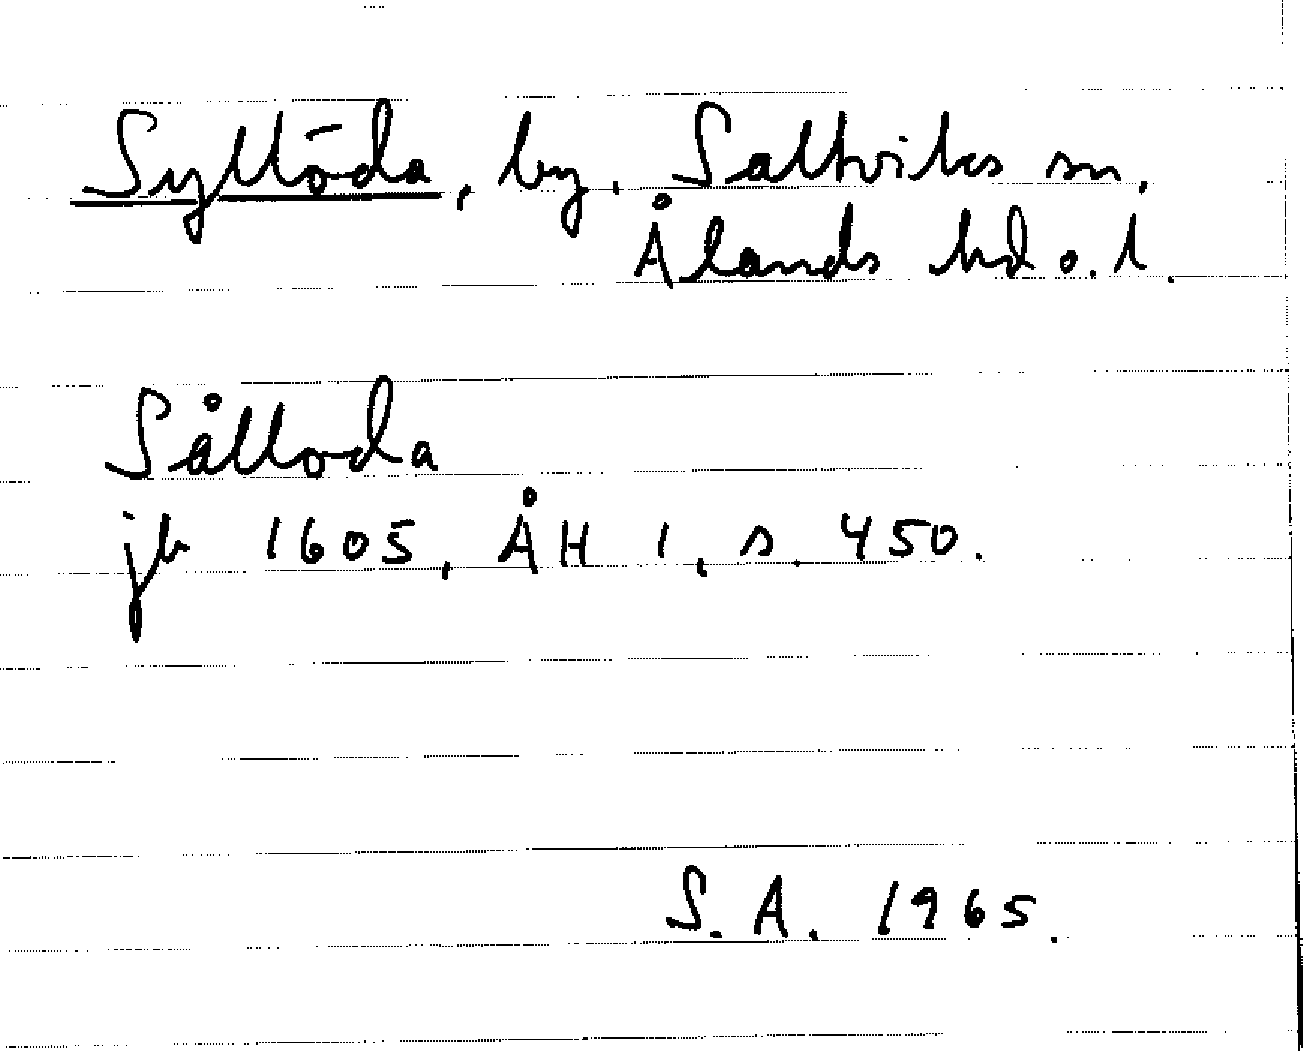 Syllöda, by, Saltviks sn,
Ålands hd o. l.
Sålloda
jb 1605, ÅH 1, s. 450.
S. A. 1965.